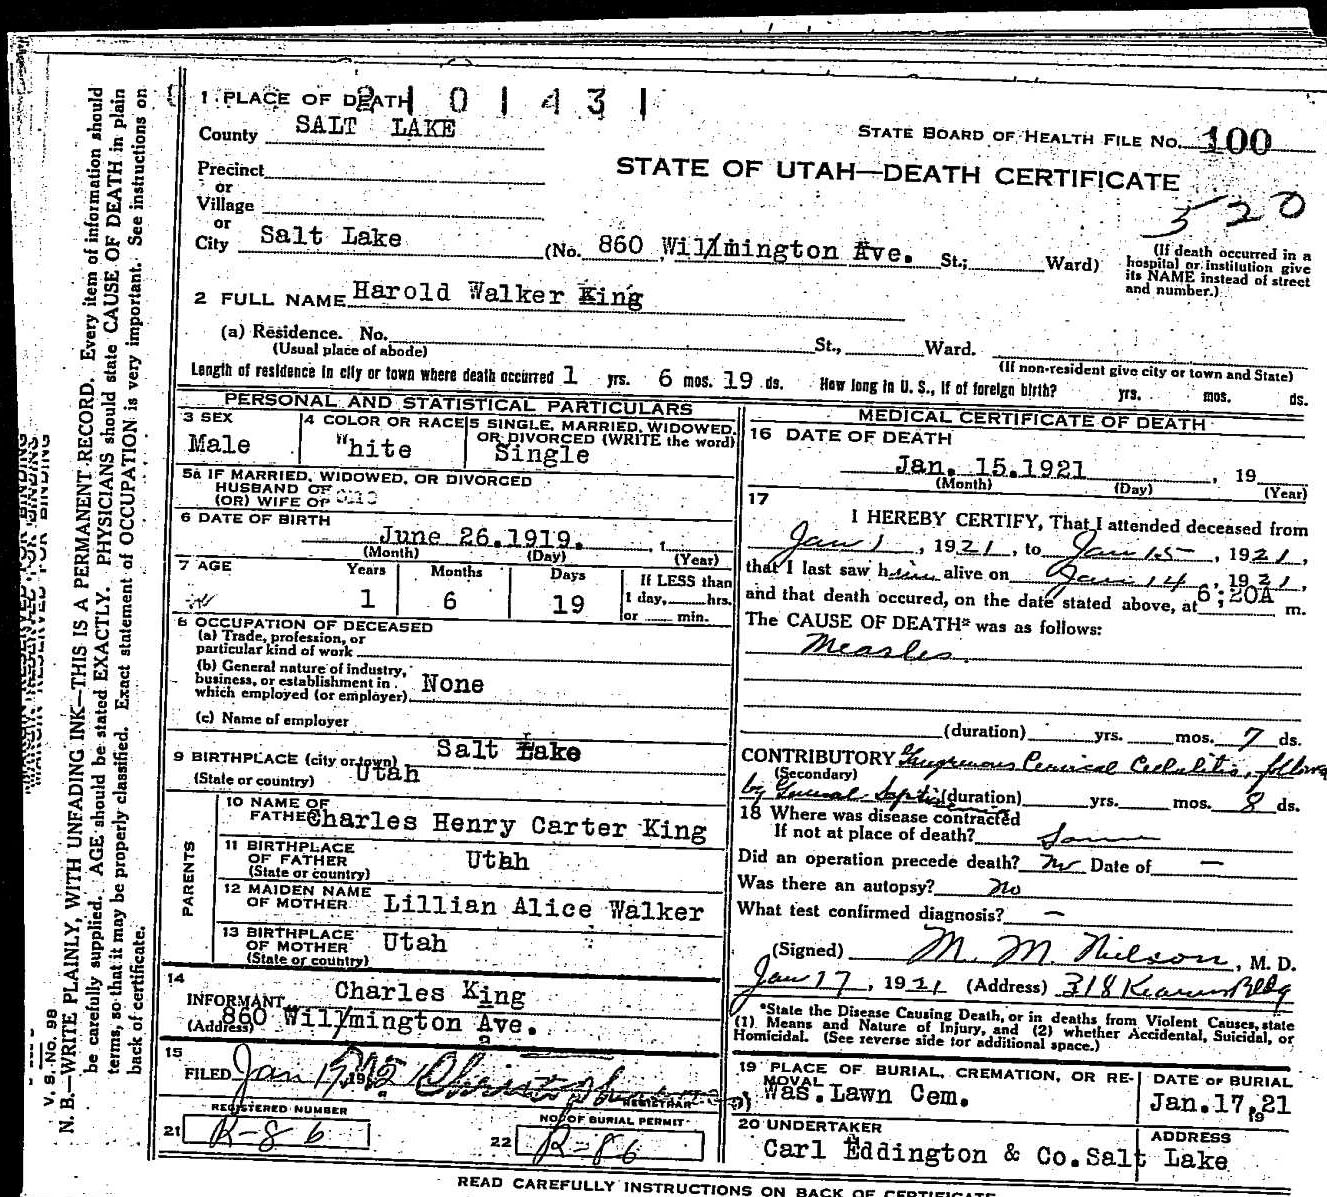 1 PLACE OF DEATH 2101431
County SALT LAKE
STATE BOARD OF HEALTH FILE NO. 100
Precinct
or
Village
or
City Salt Lake (No. 860 Wil/mington Ave. St.; Ward)
STATE OF UTAH—DEATH CERTIFICATE
520
(If death occurred in a
hospital or institution give
its NAME instead of street
and number.)
2 FULL NAME Harold Walker King
(a) Residence. No. St., Ward.
(Usual place of abode) (If non-resident give city or town and State)
Length of residence in city or town where death occurred 1 yrs. 6 mos. 19 ds. How long in U. S., if of foreign birth? yrs. mos. ds.
PERSONAL AND STATISTICAL PARTICULARS
3 SEX
Male
4 COLOR OR RACE
White
5 SINGLE, MARRIED, WIDOWED,
OR DIVORCED (WRITE the word)
Single
5a IF MARRIED, WIDOWED, OR DIVORCED
HUSBAND OF
(OR) WIFE OF
6 DATE OF BIRTH
June 26.1919. , 1
(Month) (Day) (Year)
7 AGE Years Months Days If LESS than
1 6 19 1 day, hrs.
or min.
8 OCCUPATION OF DECEASED
(a) Trade, profession, or
particular kind of work
(b) General nature of industry,
business, or establishment in
which employed (or employer) None
(c) Name of employer
9 BIRTHPLACE (city or town) Salt Lake
(State or country) Utah
PARENTS
10 NAME OF
FATHER Charles Henry Carter King
11 BIRTHPLACE
OF FATHER Utah
(State or country)
12 MAIDEN NAME
OF MOTHER Lillian Alice Walker
13 BIRTHPLACE
OF MOTHER Utah
(State or country)
14
INFORMANT Charles King
(Address) 860 Wil/mington Ave.
15
FILED Jan 17 192
REGISTRAR
REGISTERED NUMBER
21 R-86
NO. OF BURIAL PERMIT
22 R-86
MEDICAL CERTIFICATE OF DEATH
16 DATE OF DEATH
Jan. 15.1921 , 19
(Month) (Day) (Year)
17
I HEREBY CERTIFY, That I attended deceased from
Jan 1 , 1921, to Jan 15 , 1921,
that I last saw him alive on Jan 14 , 1921,
and that death occured, on the date stated above, at 6:20A m.
The CAUSE OF DEATH* was as follows:
Measles
(duration) yrs. mos. 7 ds.
CONTRIBUTORY Gangrenous Cervical Cellulitis, follow
(Secondary)
by General Septic (duration) yrs. mos. 8 ds.
18 Where was disease contracted
If not at place of death? Same
Did an operation precede death? No Date of —
Was there an autopsy? No
What test confirmed diagnosis? —
(Signed) M. M. Nielson , M. D.
Jan 17 , 1921 (Address) 318 Kearns Bldg
*State the Disease Causing Death, or in deaths from Violent Causes, state
(1) Means and Nature of Injury, and (2) whether Accidental, Suicidal, or
Homicidal. (See reverse side for additional space.)
19 PLACE OF BURIAL, CREMATION, OR RE-
MOVAL
Was. Lawn Cem.
DATE OF BURIAL
Jan.17,21
19
20 UNDERTAKER
Carl Eddington & Co.
ADDRESS
Salt Lake
READ CAREFULLY INSTRUCTIONS ON BACK OF CERTIFICATE
MARGIN RESERVED FOR BINDING
V. S. No. 98
N. B.—WRITE PLAINLY, WITH UNFADING INK—THIS IS A PERMANENT RECORD. Every item of information should
be carefully supplied. AGE should be stated EXACTLY. PHYSICIANS should state CAUSE OF DEATH in plain
terms, so that it may be properly classified. Exact statement of OCCUPATION is very important. See instructions on
back of certificate.